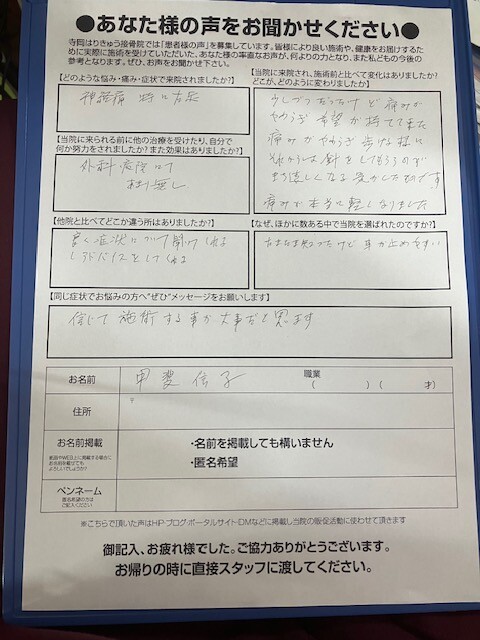 ●あなた様の声をお聞かせください●
寺岡はりきゅう接骨院では「患者様の声」を募集しています。皆様により良い施術や、健康をお届けするため
に実際に施術を受けていただいた、あなた様の率直なお声が、何よりの力となり、また私どもの今後の
参考となります。ぜひ、お声をお聞かせ下さい。
【どのような悩み・痛み・症状で来院されましたか?】
神経痛 特に右足
【当院に来られる前に他の治療を受けたり、自分で
何か努力をされましたか?また効果はありましたか?】
外科病院にて
効無し
【当院に来院され、施術前と比べて変化はありましたか?
どこが、どのように変わりましたか】
少しづつだけど痛みが
やわらぎ 希望が持てて来た
痛みがやわらぎ歩ける様に
それからは針をしてもらうのが
待ち遠しくなる
痛みが本当に軽くなりました
【他院と比べてどこか違う所はありましたか?】
良く症状について聞いてくれる
しアドバイスをしてくれる
【なぜ、ほかに数ある中で当院を選ばれたのですか?】
たまたま知ったけど 車が止めやすい
【同じ症状でお悩みの方へ"ぜひ"メッセージをお願いします】
信じて施術する事が大事だと思います
お名前
甲斐信子
職業
( ) ( 才)
住所
〒
お名前掲載
紙面やWEB上に掲載する場合に
お名前を載せても
よろしいでしょうか?
・名前を掲載しても構いません
・匿名希望
ペンネーム
匿名希望の方は
ご記入ください
※こちらで頂いた声はHP・ブログ・ポータルサイト・DMなどに掲載し当院の販促活動に使わせて頂きます
御記入、お疲れ様でした。ご協力ありがとうございます。
お帰りの時に直接スタッフに渡してください。